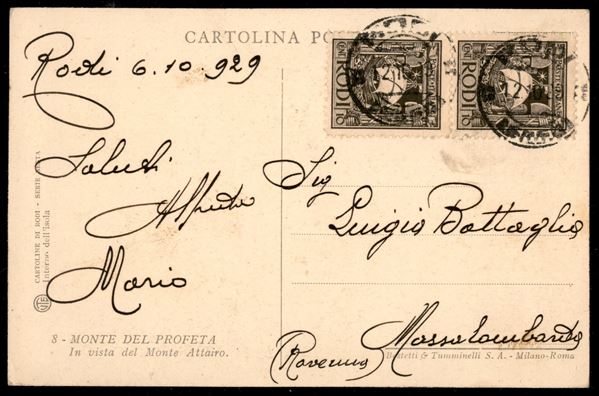 CARTOLINA PO
Rodi 6.10.929
Saluti
Alfredo
Mario
Sig
Luigio Battaglia
Massalombarda
(Ravenna)
RODI
RODI
CARTOLINE DI RODI - SERIE SESTA
Interno dell'Isola
8 - MONTE DEL PROFETA
In vista del Monte Attairo.
Bestetti & Tumminelli S. A. - Milano-Roma